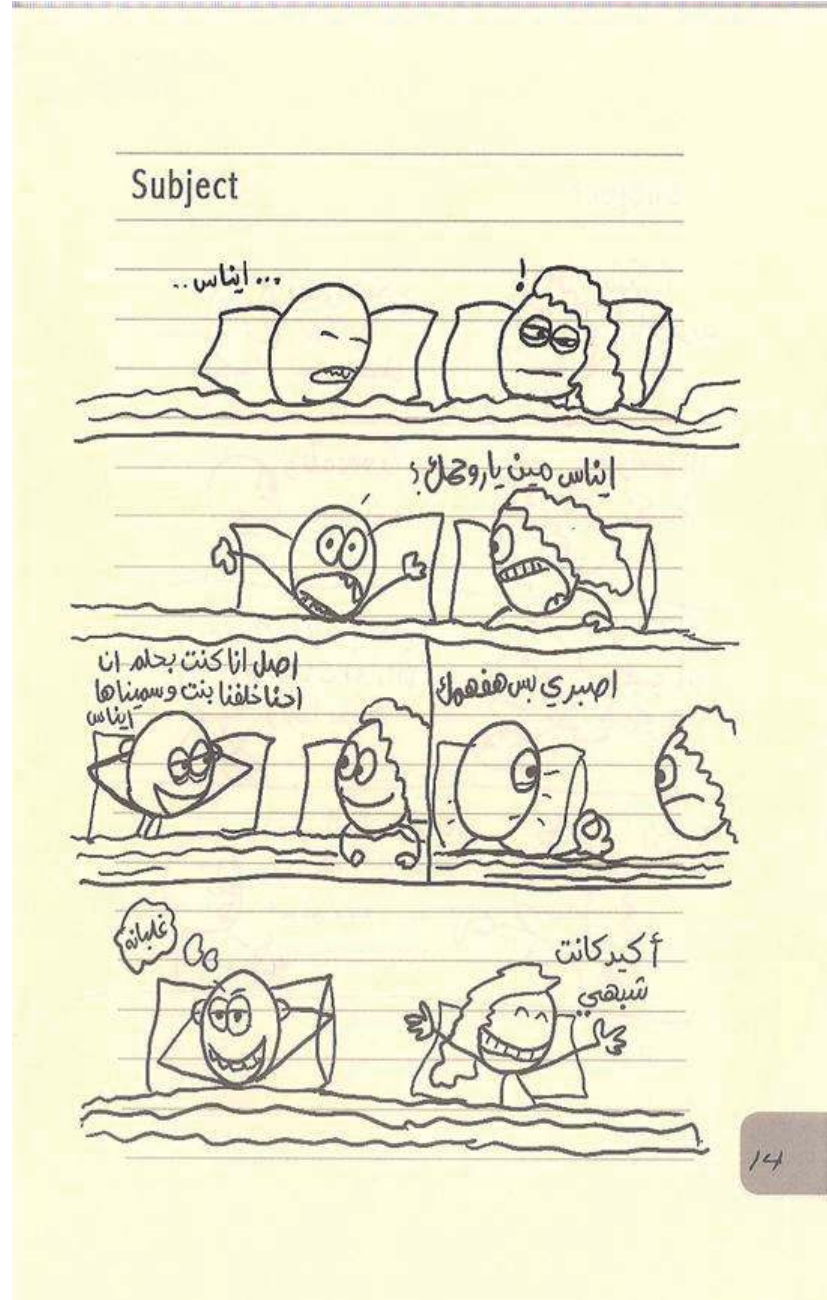 Subject
... ايناس ..
!
ايناس مين ياروحمك؟
اصبري بس هفهمك
اصل انا كنت بحلم ان
احنا خلفنا بنت وسميناها
ايناس
أكيد كانت
شبهي
غلبانه
14